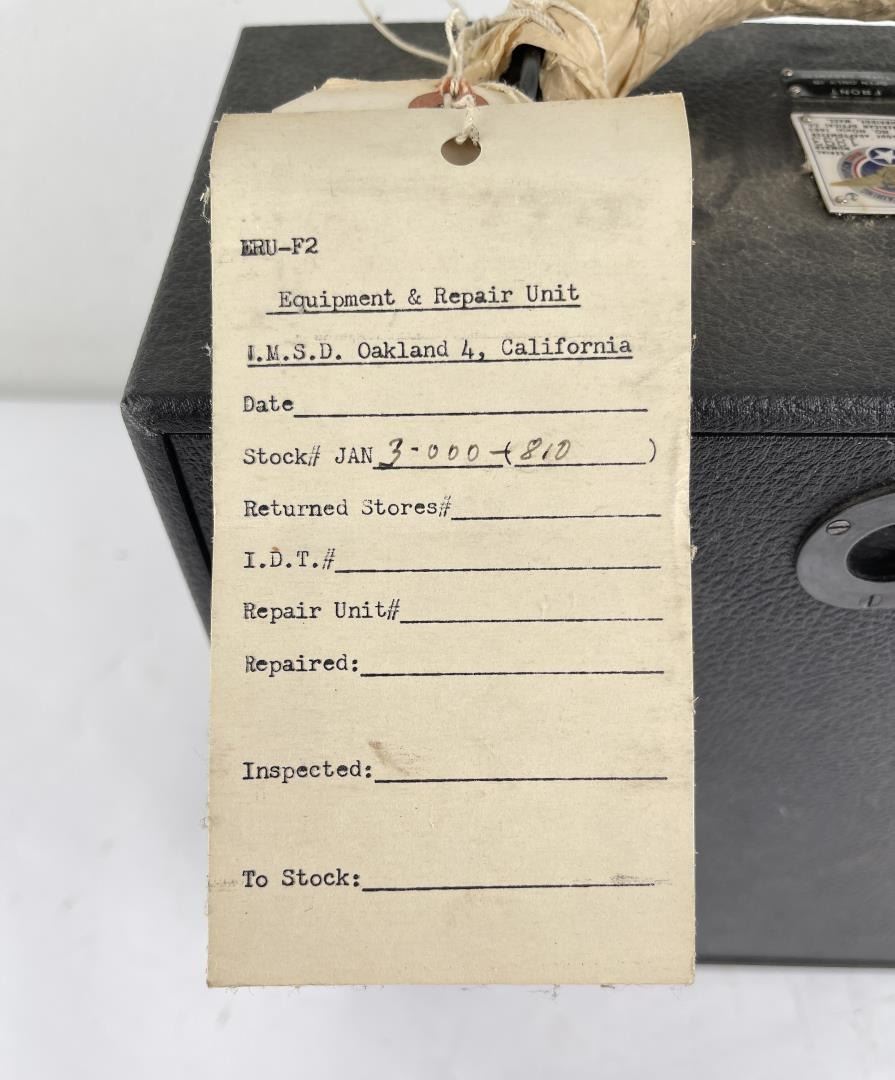 ERU-F2
Equipment & Repair Unit
I.M.S.D. Oakland 4, California
Date
Stock# JAN 3-000-(810 )
Returned Stores#
I.D.T.#
Repair Unit#
Repaired:
Inspected:
To Stock:
FRONT